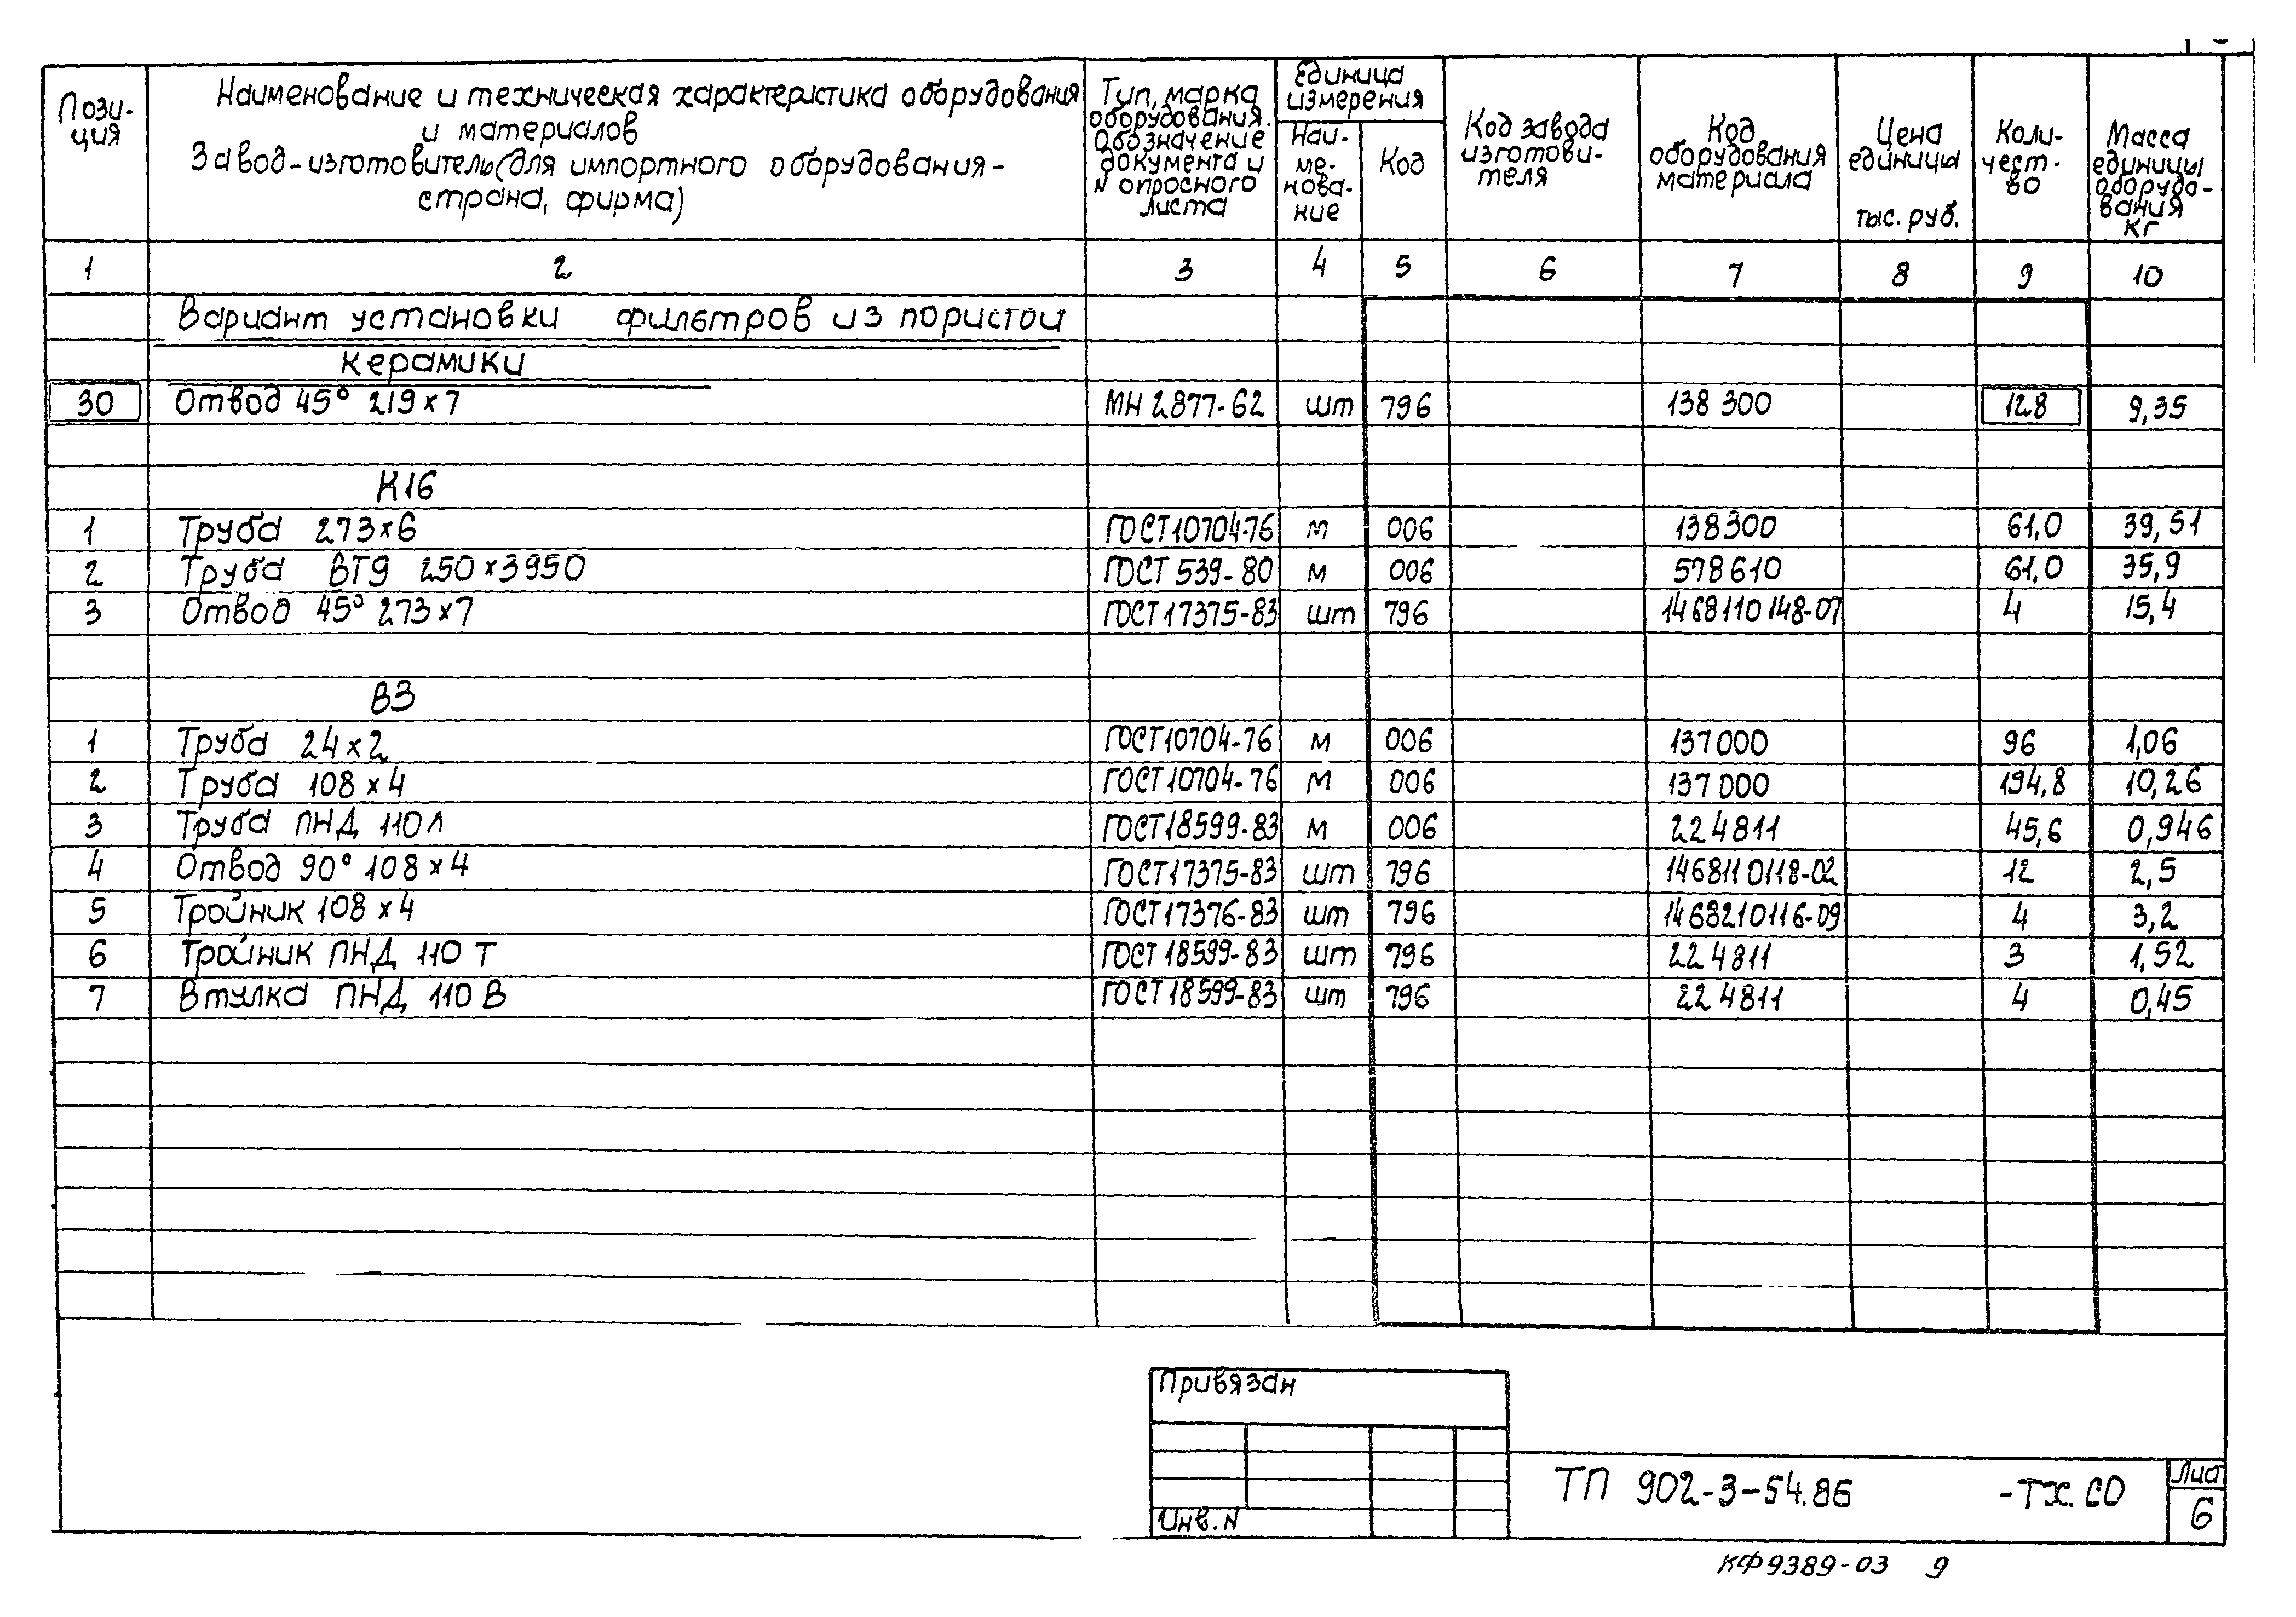 Пози-
ция
Наименование и техническая характеристика оборудования
и материалов
Завод-изготовитель (для импортного оборудования-
страна, фирма)
Тип, марка
оборудования.
Обозначение
документа и
N опросного
листа
Единица
измерения
Наи-
ме-
нова-
ние
Код
Код завода
изготови-
теля
Код
оборудования
материала
Цена
единицы
тыс. руб.
Коли-
чест-
во
Масса
единицы
оборудо-
вания
кг
1 2 3 4 5 6 7 8 9 10
Вариант установки фильтров из пористой
керамики
30 Отвод 45° 219×7 МН 2877-62 шт 796 138 300 128 9,35
К16
1 Труба 273×6 ГОСТ10704-76 м 006 138300 61,0 39,51
2 Труба ВТ9 250×3950 ГОСТ 539-80 м 006 578610 61,0 35,9
3 Отвод 45° 273×7 ГОСТ17375-83 шт 796 1468110148-07 4 15,4
В3
1 Труба 24×2 ГОСТ10704-76 м 006 137000 96 1,06
2 Труба 108×4 ГОСТ10704-76 м 006 137000 194,8 10,26
3 Труба ПНД 110Л ГОСТ18599-83 м 006 224811 45,6 0,946
4 Отвод 90° 108×4 ГОСТ17375-83 шт 796 1468110118-02 12 2,5
5 Тройник 108×4 ГОСТ17376-83 шт 796 1468210116-09 4 3,2
6 Тройник ПНД 110 Т ГОСТ 18599-83 шт 796 224811 3 1,52
7 Втулка ПНД 110 В ГОСТ 18599-83 шт 796 224811 4 0,45
Привязан
Инв. N
ТП 902-3-54.86 -ТХ.СО
Лис
6
КФ9389-03 9